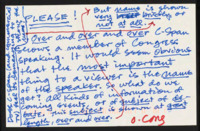 PLEASE! But name is shown
very briefly or
not at all.
Over and over and over C-Span
shows a member of Congress
speaking. It would seem obvious
that the most important
thing to a viewer is the name
of the speaker, so what do we
get? All kinds of information of
coming events, or of subject of de-
bate. This subject is shown at great
length, over and over.
O-Cong